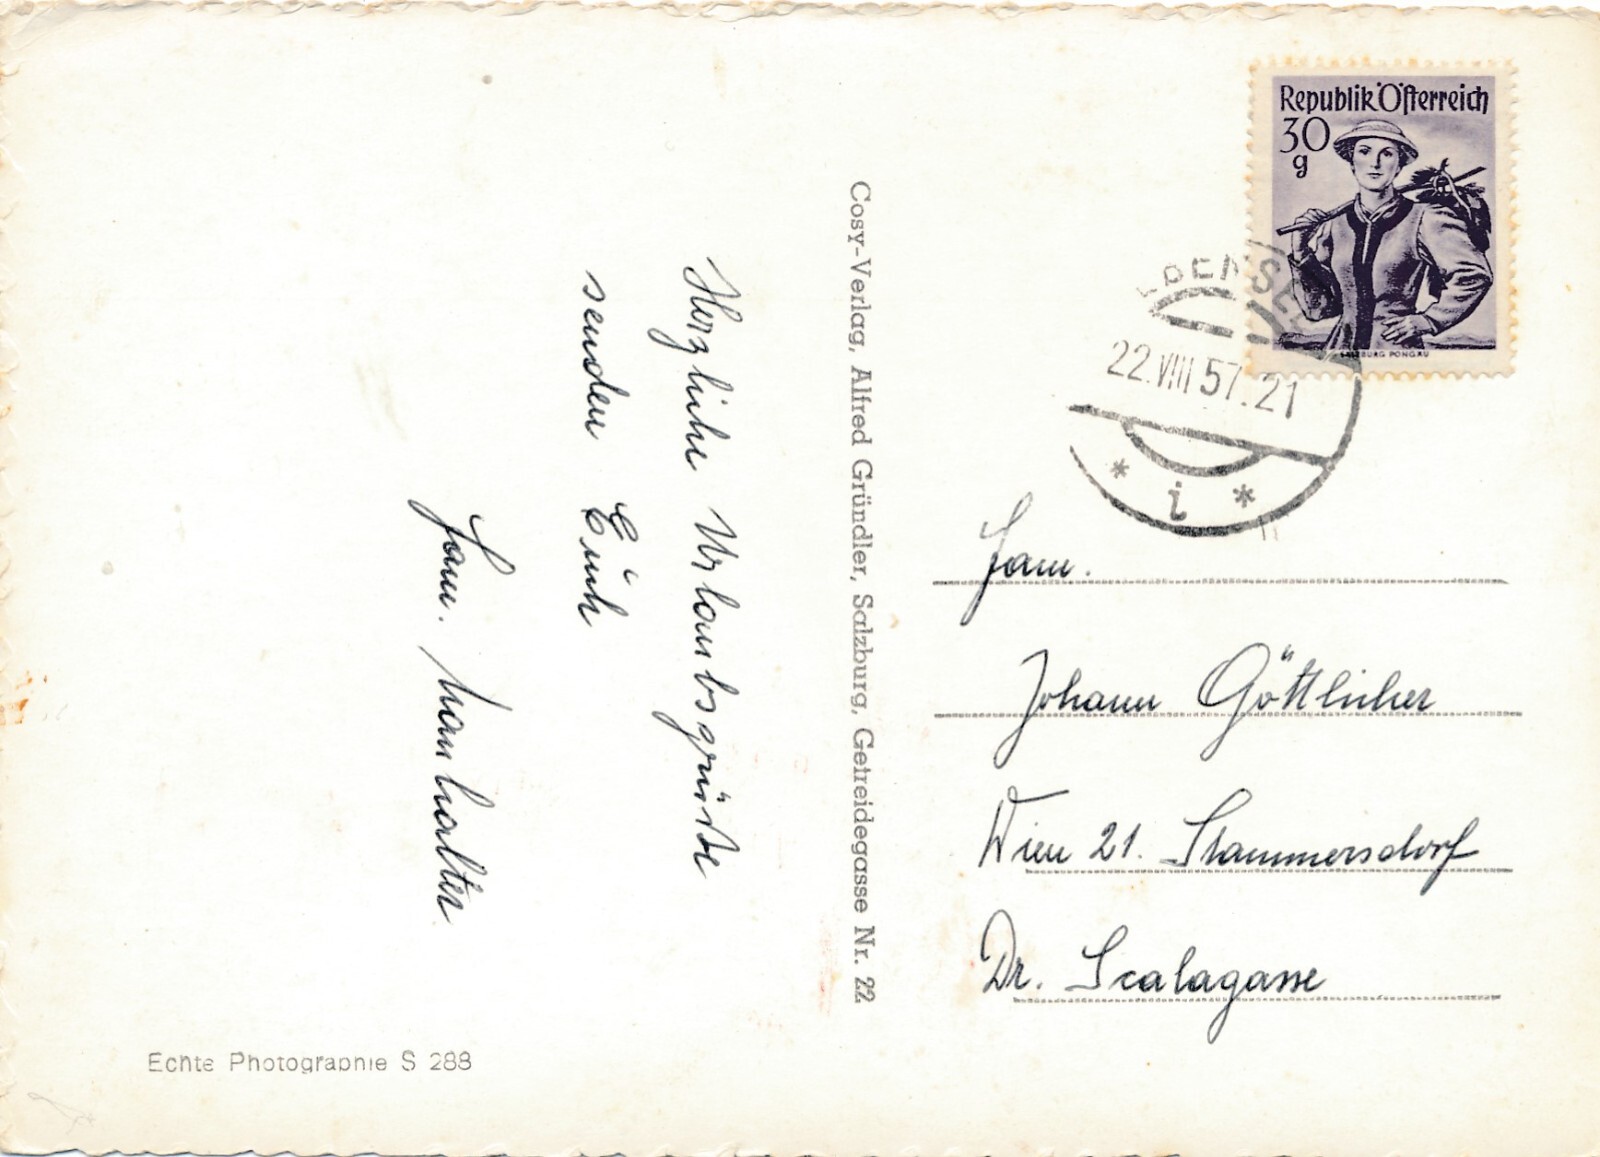 Herzliche Urlaubsgrüsse
senden Euch
Fam.
Cosy-Verlag, Alfred Gründler, Salzburg, Getreidegasse Nr. 22
Echte Photographie S 288
Republik Österreich
30
g
SALZBURG PONGAU
EBENSEE
22.VIII 57.21
* i *
Fam.
Johann Göttlicher
Wien 21. Stammersdorf
Dr. Scalagasse